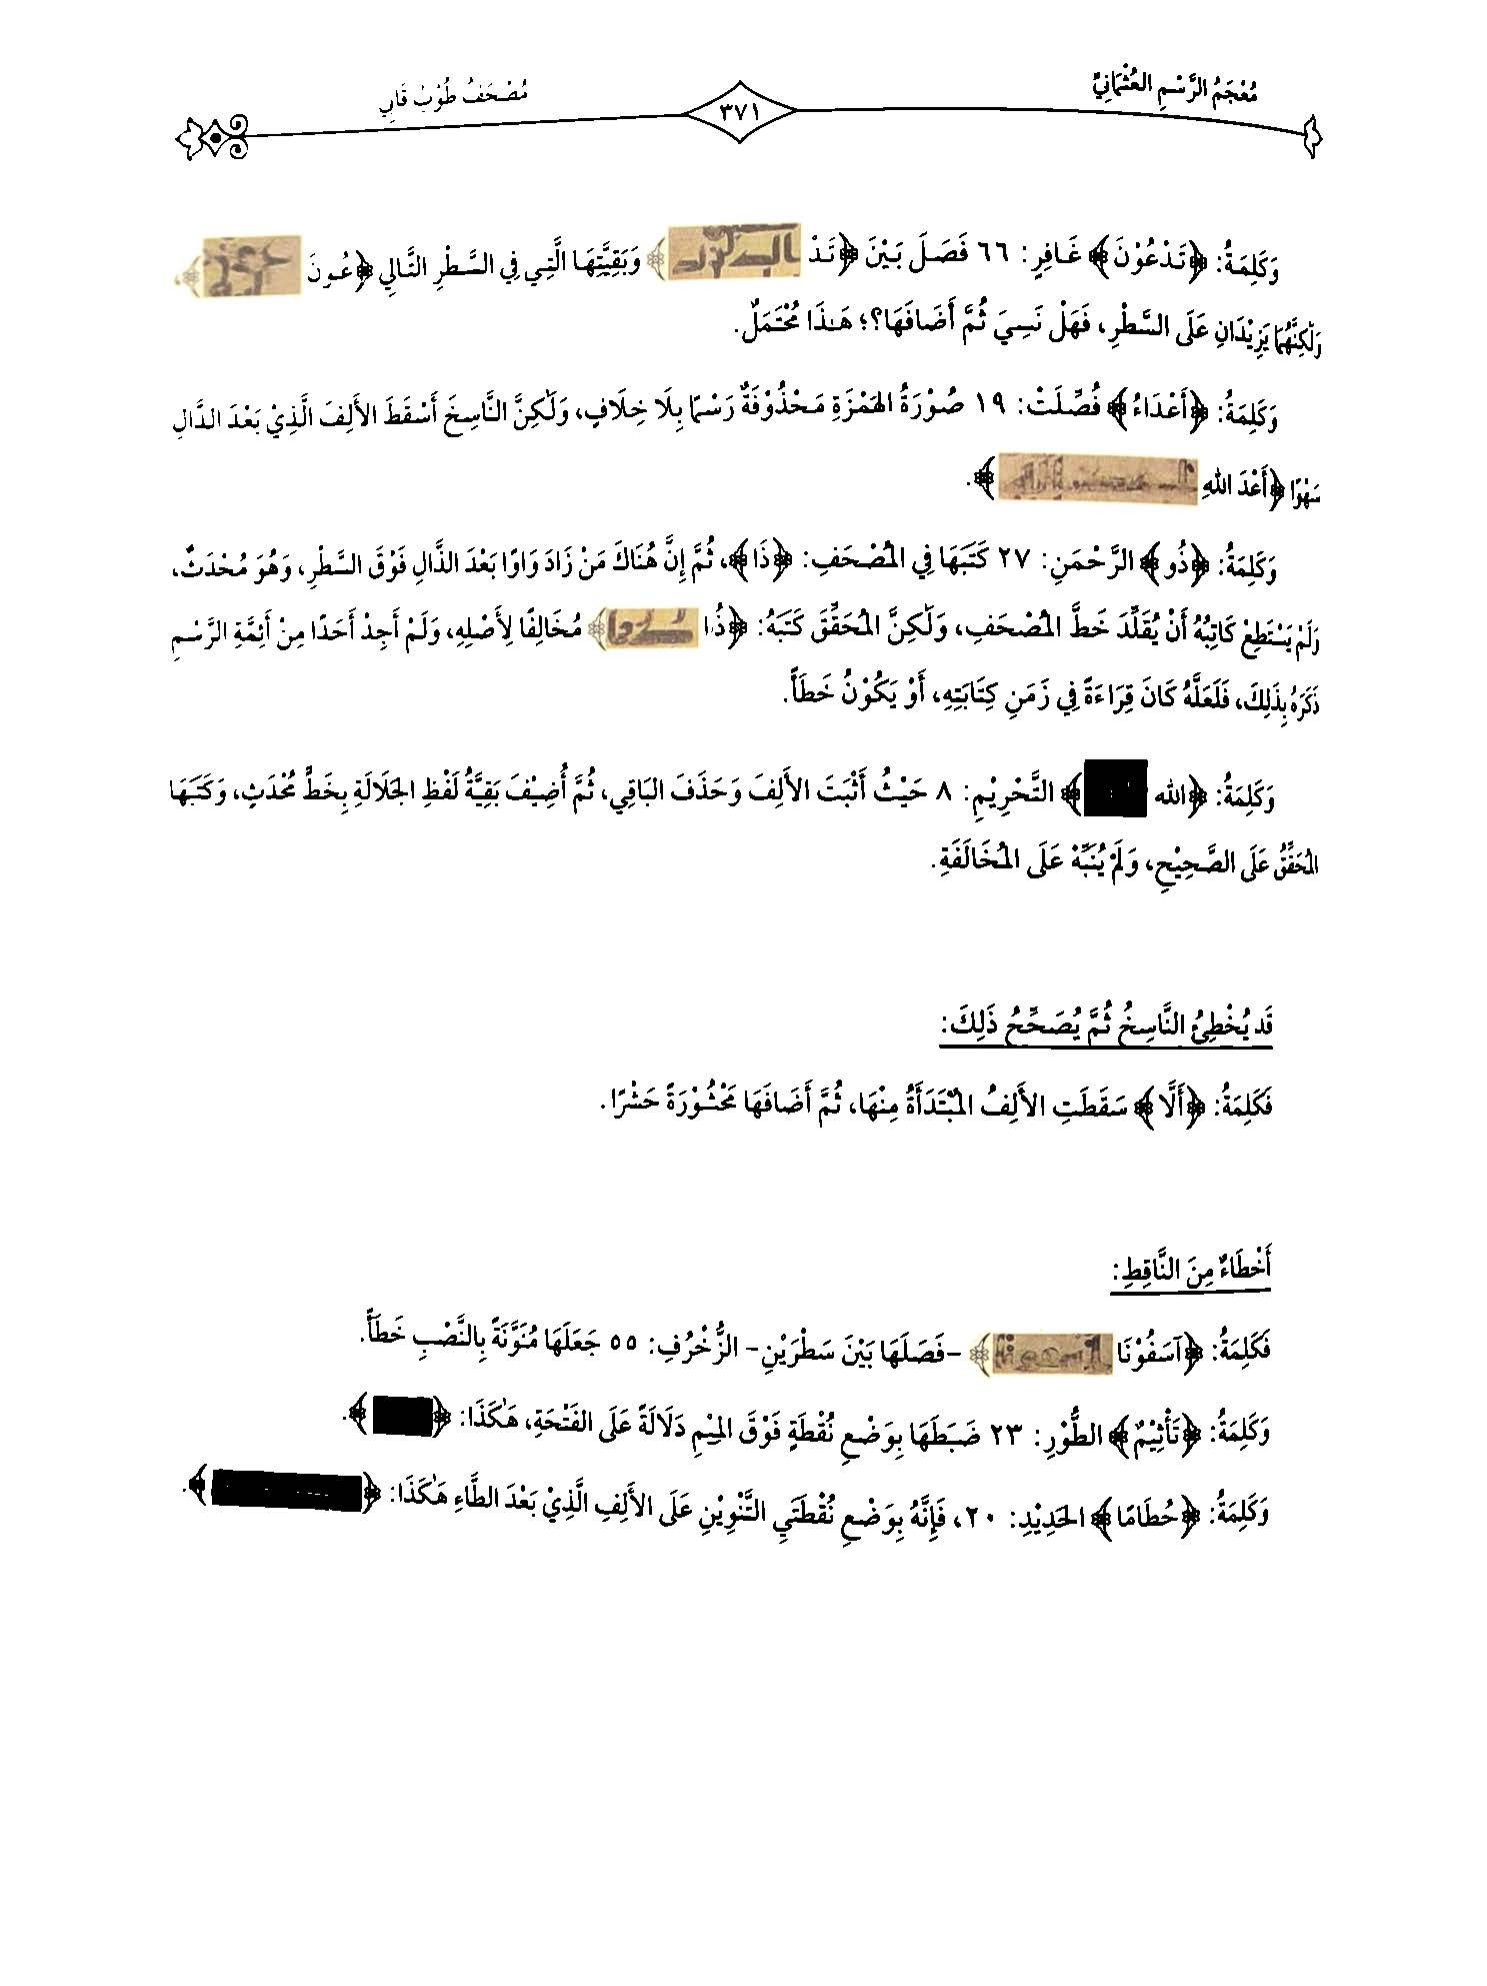 مُعْجَمُ الرَّسْمِ العُثْمَانِيِّ
٣٧١
مُصْحَفُ طُوْبْ قَابِي
وَكَلِمَةُ: ﴿تَدْعُوْنَ﴾ غَافِرٍ: ٦٦ فَصَلَ بَيْنَ ﴿تَدْ ﴾ وَبَقِيَّتِهَا الَّتِي فِي السَّطْرِ التَّالِي ﴿عُونَ ﴾
وَلَكِنَّهُمَا يَزِيْدَانِ عَلَى السَّطْرِ، فَهَلْ نَسِيَ ثُمَّ أَضَافَهَا؟؛ هَـٰذَا مُحْتَمَلٌ.
وَكَلِمَةُ: ﴿أَعْدَاءُ﴾ فُصِّلَتْ: ١٩ صُوْرَةُ الهَمْزَةِ مَحْذُوْفَةٌ رَسْمًا بِلَا خِلَافٍ، وَلَـٰكِنَّ النَّاسِخَ أَسْقَطَ الأَلِفَ الَّذِيْ بَعْدَ الدَّالِ
سَهْوًا ﴿أَعْدَ اللهِ ﴾.
وَكَلِمَةُ: ﴿ذُو﴾ الرَّحْمَنِ: ٢٧ كَتَبَهَا فِي المُصْحَفِ: ﴿ذَا﴾، ثُمَّ إِنَّ هُنَاكَ مَنْ زَادَ وَاوًا بَعْدَ الذَّالِ فَوْقَ السَّطْرِ، وَهُوَ مُحْدَثٌ،
وَلَمْ يَسْتَطِعْ كَاتِبُهُ أَنْ يُقَلِّدَ خَطَّ المُصْحَفِ، وَلَـٰكِنَّ المُحَقِّقَ كَتَبَهُ: ﴿ذُا ﴾ مُخَالِفًا لِأَصْلِهِ، وَلَمْ أَجِدْ أَحَدًا مِنْ أَئِمَّةِ الرَّسْمِ
ذَكَرَهُ بِذَلِكَ، فَلَعَلَّهُ كَانَ قِرَاءَةً فِي زَمَنِ كِتَابَتِهِ، أَوْ يَكُوْنُ خَطَأً.
وَكَلِمَةُ: ﴿الله ﴾ التَّحْرِيْمِ: ٨ حَيْثُ أَثْبَتَ الأَلِفَ وَحَذَفَ البَاقِي، ثُمَّ أُضِيْفَ بَقِيَّةُ لَفْظِ الجَلَالَةِ بِخَطٍّ مُحْدَثٍ، وَكَتَبَهَا
المُحَقِّقُ عَلَى الصَّحِيْحِ، وَلَمْ يُنَبِّهْ عَلَى المُخَالَفَةِ.
قَد يُخْطِئُ النَّاسِخُ ثُمَّ يُصَحِّحُ ذَلِكَ:
فَكَلِمَةُ: ﴿أَلَّا﴾ سَقَطَتِ الأَلِفُ المُبْتَدَأَةُ مِنْهَا، ثُمَّ أَضَافَهَا مَحْشُوْرَةً حَشْرًا.
أَخْطَاءٌ مِنَ النَّاقِطِ:
فَكَلِمَةُ: ﴿آسَفُوْنَا ﴾ -فَصَلَهَا بَيْنَ سَطْرَيْنِ- الزُّخْرُفِ: ٥٥ جَعَلَهَا مُنَوَّنَةً بِالنَّصْبِ خَطَأً.
وَكَلِمَةُ: ﴿تَأْثِيْمٌ﴾ الطُّوْرِ: ٢٣ ضَبَطَهَا بِوَضْعِ نُقْطَةٍ فَوْقَ المِيْمِ دَلَالَةً عَلَى الفَتْحَةِ، هَـٰكَذَا: ﴿ ﴾.
وَكَلِمَةُ: ﴿حُطَامًا﴾ الحَدِيْدِ: ٢٠، فَإِنَّهُ بِوَضْعِ نُقْطَتَيِ التَّنْوِيْنِ عَلَى الأَلِفِ الَّذِيْ بَعْدَ الطَّاءِ هَـٰكَذَا: ﴿ ﴾.